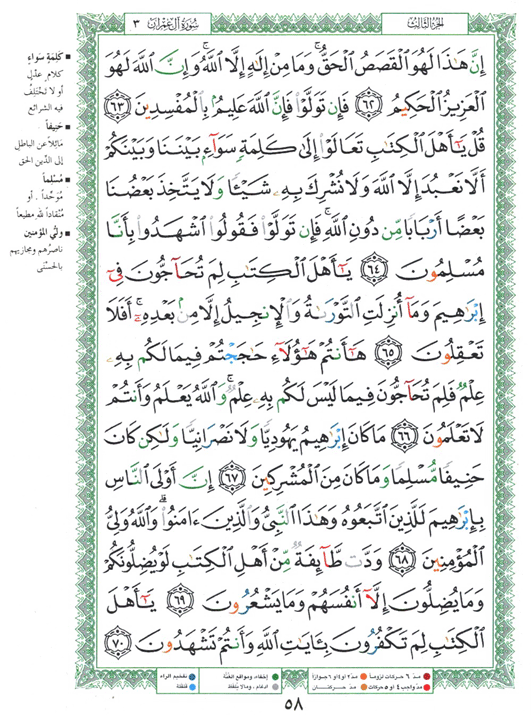 الجزء الثالث
سورة آل عمران ٣
إِنَّ هَٰذَا لَهُوَ ٱلْقَصَصُ ٱلْحَقُّ ۚ وَمَا مِنْ إِلَٰهٍ إِلَّا ٱللَّهُ ۚ وَإِنَّ ٱللَّهَ لَهُوَ
ٱلْعَزِيزُ ٱلْحَكِيمُ ٦٢ فَإِن تَوَلَّوْا۟ فَإِنَّ ٱللَّهَ عَلِيمٌۢ بِٱلْمُفْسِدِينَ ٦٣
قُلْ يَٰٓأَهْلَ ٱلْكِتَٰبِ تَعَالَوْا۟ إِلَىٰ كَلِمَةٍ سَوَآءٍۭ بَيْنَنَا وَبَيْنَكُمْ
أَلَّا نَعْبُدَ إِلَّا ٱللَّهَ وَلَا نُشْرِكَ بِهِۦ شَيْـًٔا وَلَا يَتَّخِذَ بَعْضُنَا
بَعْضًا أَرْبَابًا مِّن دُونِ ٱللَّهِ ۚ فَإِن تَوَلَّوْا۟ فَقُولُوا۟ ٱشْهَدُوا۟ بِأَنَّا
مُسْلِمُونَ ٦٤ يَٰٓأَهْلَ ٱلْكِتَٰبِ لِمَ تُحَآجُّونَ فِىٓ
إِبْرَٰهِيمَ وَمَآ أُنزِلَتِ ٱلتَّوْرَىٰةُ وَٱلْإِنجِيلُ إِلَّا مِنۢ بَعْدِهِۦٓ ۚ أَفَلَا
تَعْقِلُونَ ٦٥ هَٰٓأَنتُمْ هَٰٓؤُلَآءِ حَٰجَجْتُمْ فِيمَا لَكُم بِهِۦ
عِلْمٌ فَلِمَ تُحَآجُّونَ فِيمَا لَيْسَ لَكُم بِهِۦ عِلْمٌ ۚ وَٱللَّهُ يَعْلَمُ وَأَنتُمْ
لَا تَعْلَمُونَ ٦٦ مَا كَانَ إِبْرَٰهِيمُ يَهُودِيًّا وَلَا نَصْرَانِيًّا وَلَٰكِن كَانَ
حَنِيفًا مُّسْلِمًا وَمَا كَانَ مِنَ ٱلْمُشْرِكِينَ ٦٧ إِنَّ أَوْلَى ٱلنَّاسِ
بِإِبْرَٰهِيمَ لَلَّذِينَ ٱتَّبَعُوهُ وَهَٰذَا ٱلنَّبِىُّ وَٱلَّذِينَ ءَامَنُوا۟ ۗ وَٱللَّهُ وَلِىُّ
ٱلْمُؤْمِنِينَ ٦٨ وَدَّت طَّآئِفَةٌ مِّنْ أَهْلِ ٱلْكِتَٰبِ لَوْ يُضِلُّونَكُمْ
وَمَا يُضِلُّونَ إِلَّآ أَنفُسَهُمْ وَمَا يَشْعُرُونَ ٦٩ يَٰٓأَهْلَ
ٱلْكِتَٰبِ لِمَ تَكْفُرُونَ بِـَٔايَٰتِ ٱللَّهِ وَأَنتُمْ تَشْهَدُونَ ٧٠
■ كَلِمَةٍ سَواءٍ
كلامٍ عدْلٍ
أو لا تختلِفُ
فيه الشرائع
■ حَنيفاً
مَائلاً عن الباطلِ
إلى الدِّين الحق
■ مُسْلِماً
مُوَحِّداً . أو
مُنْقاداً لله مطيعاً
■ وَليُّ المؤمنين
ناصرُهم ومجازيهم
بالحسْنى
مدّ ٦ حركات لزوماً
مدّ ٢ أو ٤ أو ٦ جوازاً
إخفاء، ومواقع الغُنَّة
تفخيم الراء
مدّ واجب ٤ أو ٥ حركات
مدّ حركتان
ادغام، ومالا يُلفظ
قلقلة
٥٨